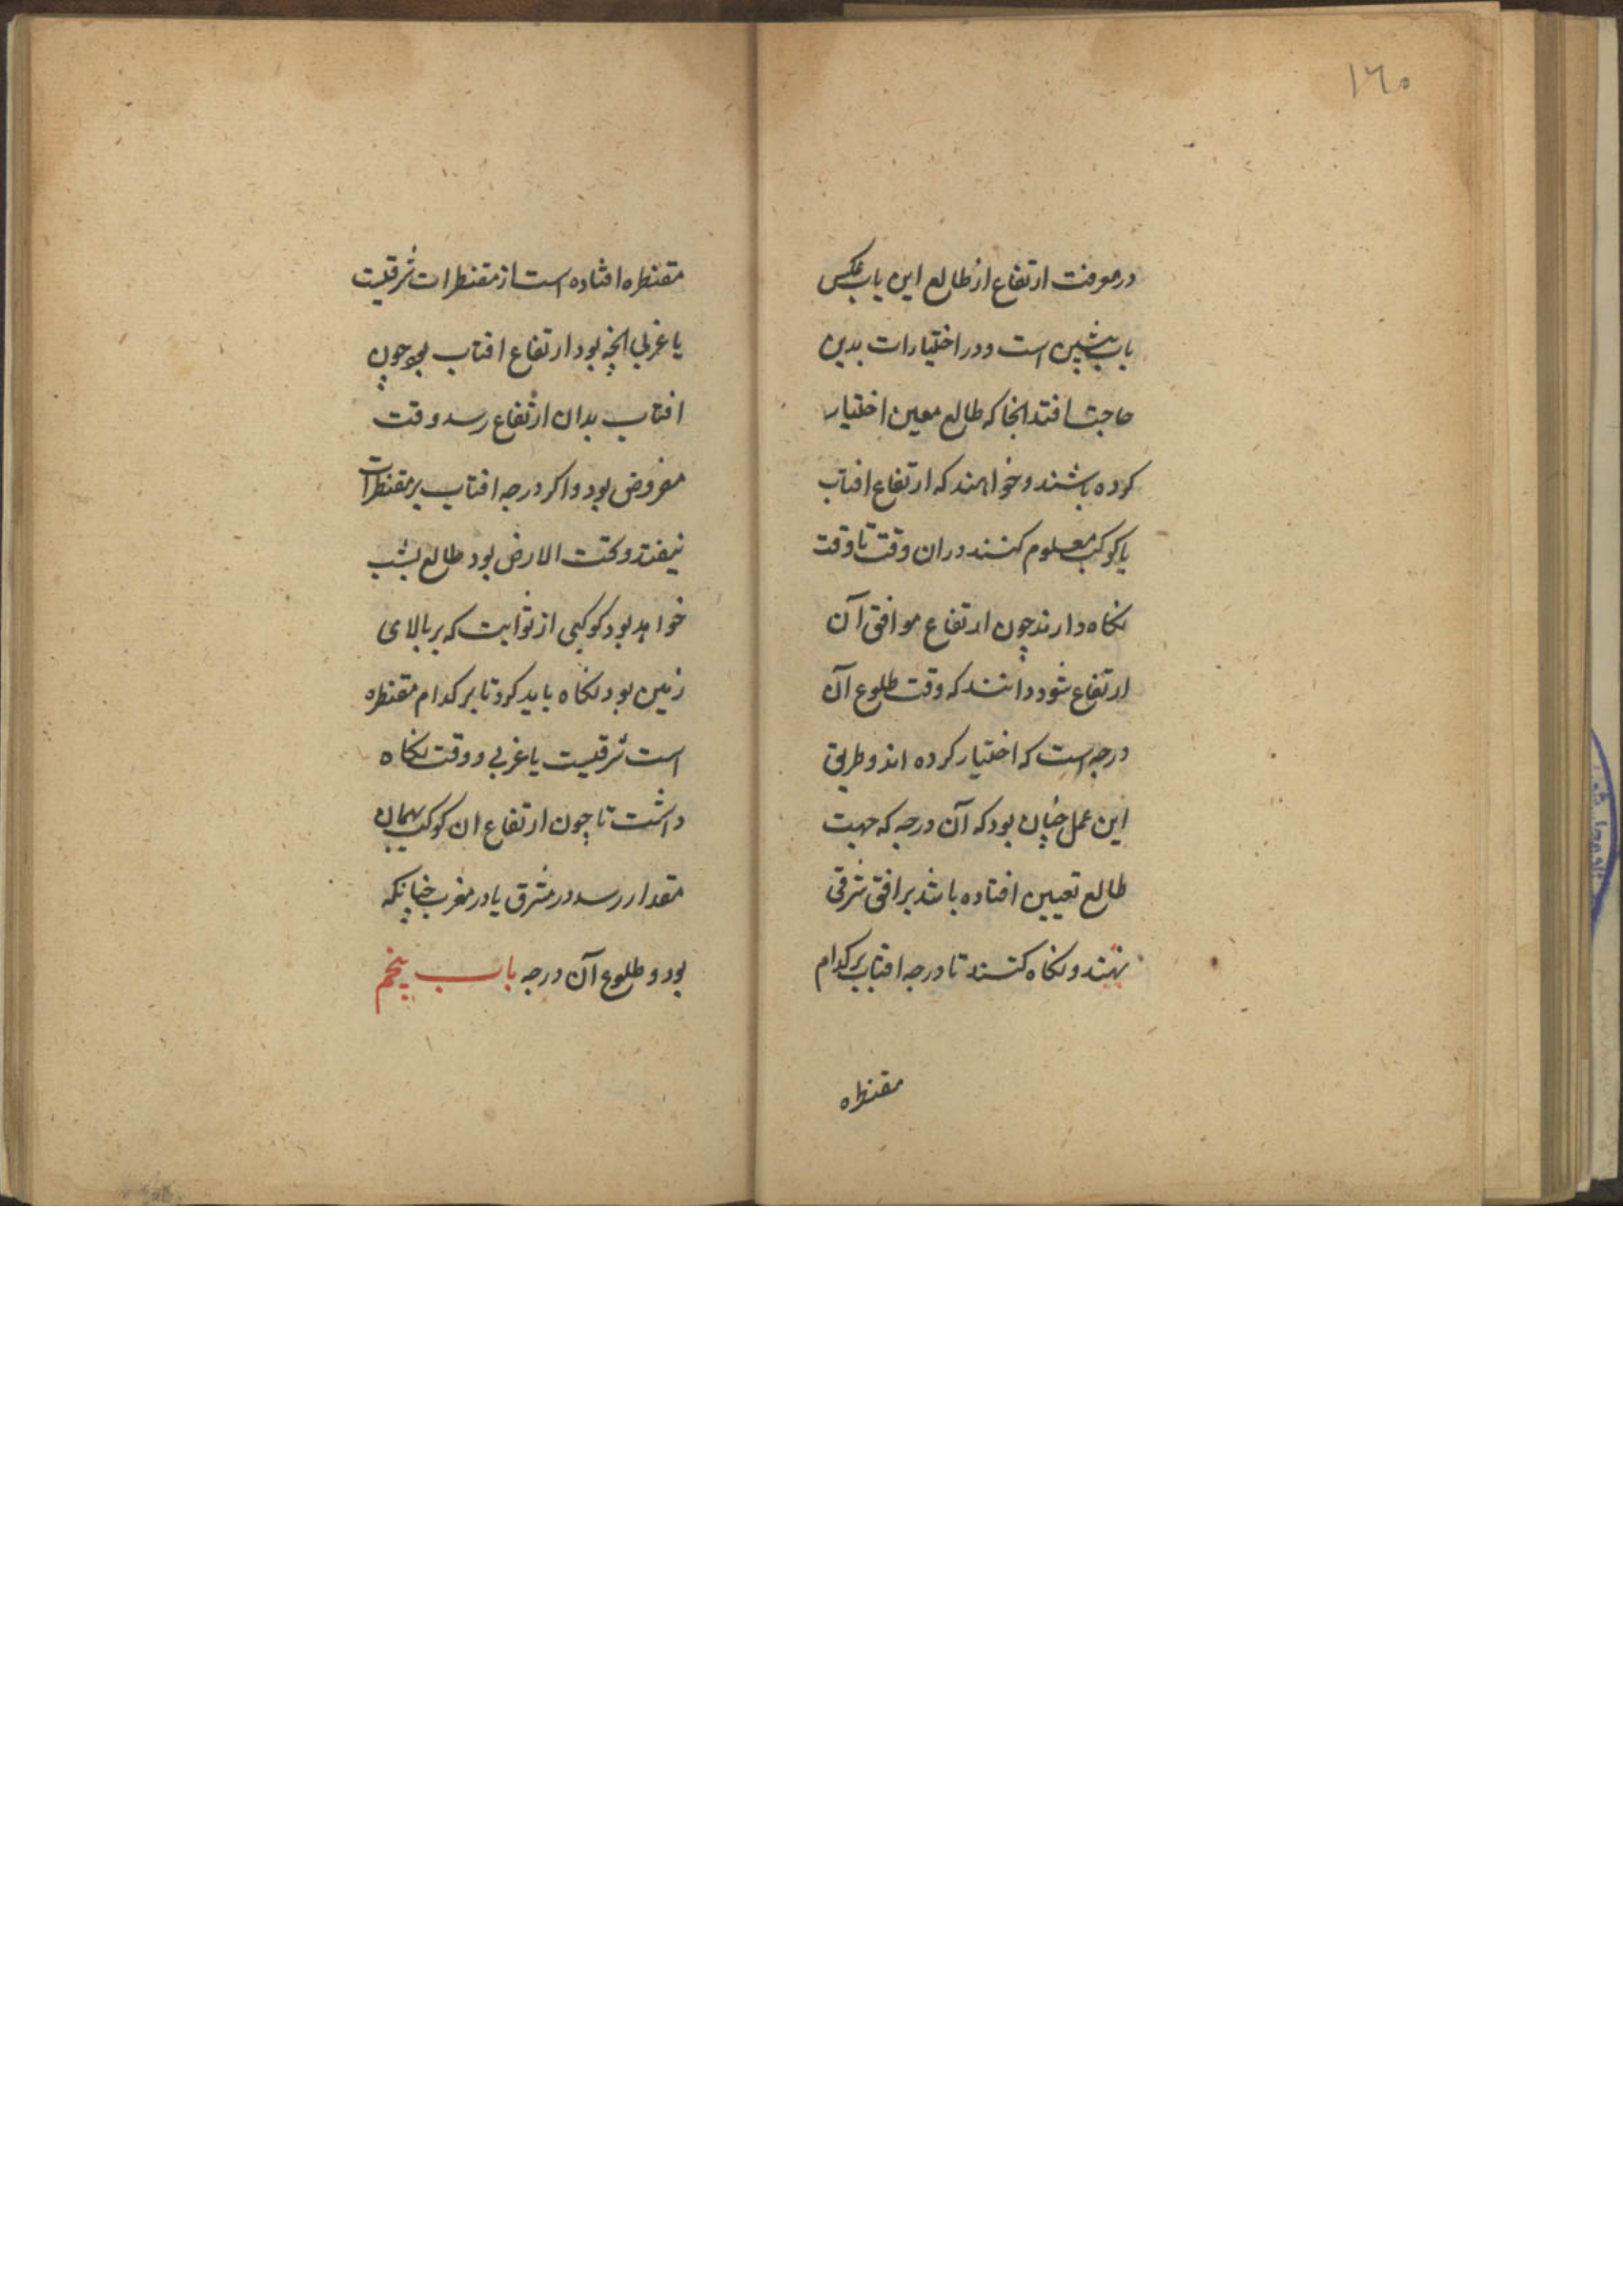 ١٦٥
در معرفت ارتفاع از طالع این باب عکس
باب پیشین است و در اختیارات بدین
حاجت افتد انجا که طالع معین اختیار
کرده باشند و خواهند که ارتفاع افتاب
یا کوکب معلوم کنند در ان وقت تا وقت
نکاه دارند چون ارتفاع موافق آن
ارتفاع شود دانند که وقت طلوع آن
درجه است که اختیار کرده اند و طریق
این عمل چنان بود که آن درجه که جهت
طالع تعیین افتاده باشد بر افق شرقی
نهند و نکاه کنند تا درجه افتاب بر کدام
مقنطره
مقنطره افتاده است از مقنطرات شرقیست
یا غربی انچه بود ارتفاع افتاب بود چون
افتاب بدان ارتفاع رسد وقت
مفروض بود و اکر درجه افتاب بر مقنطرات
نیفتد و تحت الارض بود طالع بشب
خواهد بود کوکبی از ثوابت که بر بالای
زمین بود نکاه باید کرد تا بر کدام مقنطره
است شرقیست یا غربی و وقت نکاه
داشت تا چون ارتفاع ان کوکب بهمان
مقدار رسد در مشرق یا در مغرب چنانکه
بود وطلوع آن درجه باب پنجم